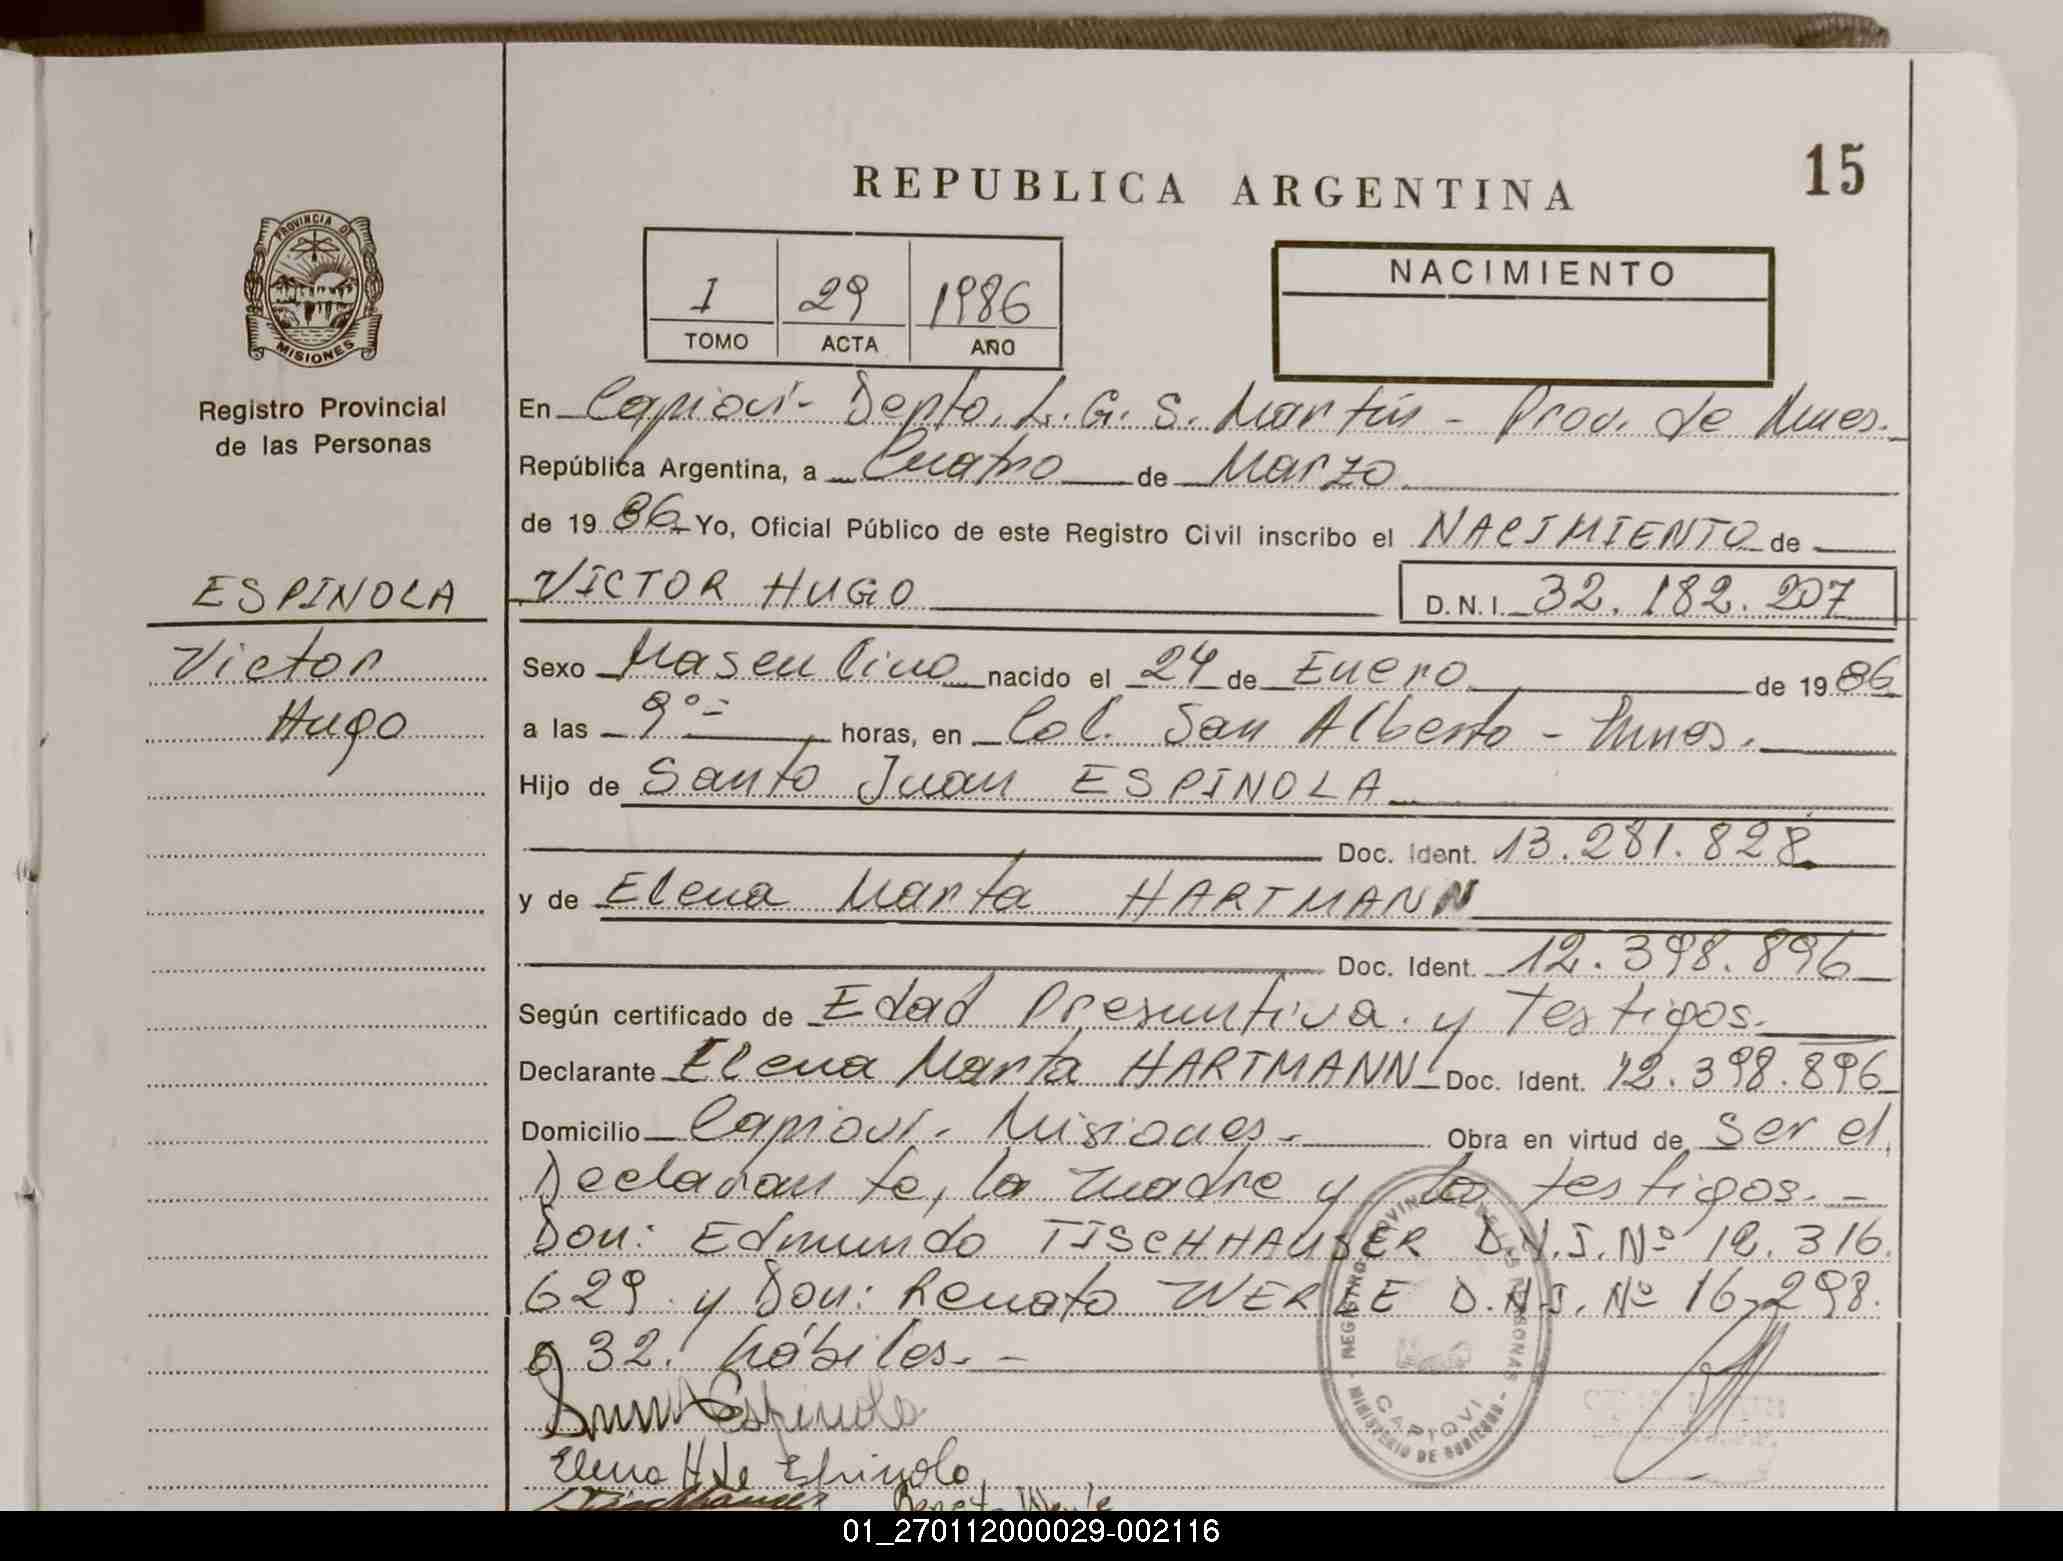 15
REPUBLICA ARGENTINA
PROVINCIA DE
MISIONES
Registro Provincial
de las Personas
I 29 1986
TOMO ACTA AÑO
NACIMIENTO
En Capioví- Depto. L. G. S. Martín - Prov. de Mnes.
República Argentina, a Cuatro de Marzo
de 19 86 Yo, Oficial Público de este Registro Civil inscribo el NACIMIENTO de
ESPINOLA
Victor
Hugo
VICTOR HUGO D.N.I. 32.182.207
Sexo Masculino nacido el 24 de Enero de 19 86
a las 9º= horas, en Col. San Alberto - Mnes.
Hijo de Santo Juan ESPINOLA
Doc. Ident. 13.281.828
y de Elena Marta HARTMANN
Doc. Ident. 12.398.896
Según certificado de Edad Presuntiva y Testigos.
Declarante Elena Marta HARTMANN Doc. Ident. 12.398.896
Domicilio Capioví. Misiones. Obra en virtud de Ser el
Declarante, la madre y los testigos. -
Don: Edmundo TISCHHAUSER D.N.I. Nº 12.316.
629 y Don: Renato WERLE D.N.I. Nº 16.298.
032. hábiles. -
Espinola
Elena H de Espinola
REGISTRO PROVINCIAL DE LAS PERSONAS
CAPIOVI
MINISTERIO DE GOBIERNO
01_270112000029-002116